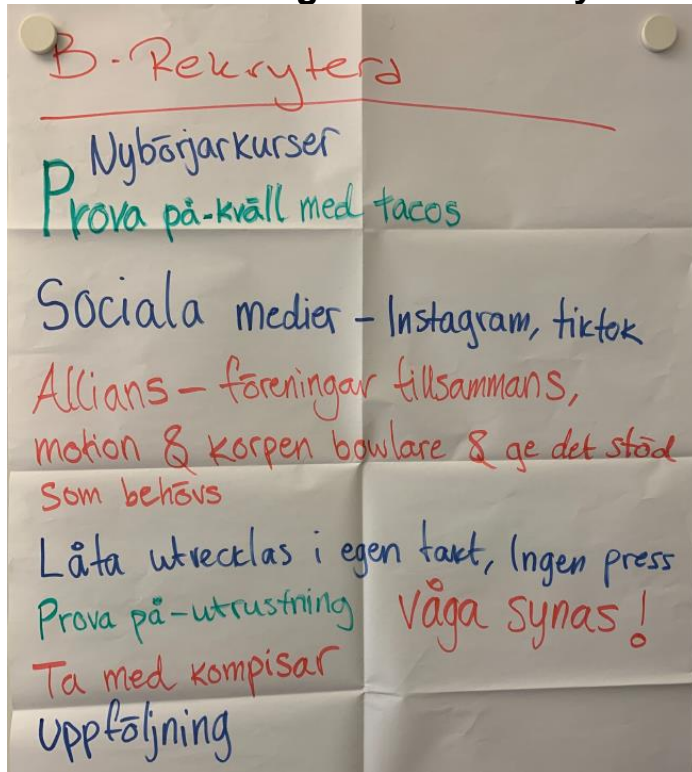 B-Rekrytera
Nybörjarkurser
Prova på-kväll med tacos
Sociala medier - Instagram, tiktok
Allians - föreningar tillsammans,
motion & korpen bowlare & ge det stöd
som behövs
Låta utvecklas i egen takt, Ingen press
Prova på-utrustning Våga synas!
Ta med kompisar
uppföljning